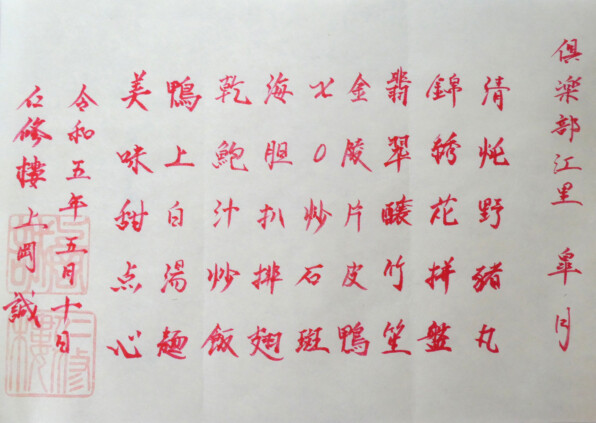 倶楽部江里 皐月
清炖野猪丸
錦綉花拼盤
翡翠醸竹笙
金陵片皮鴨
XO炒石斑
海胆扒排翅
乾鮑汁炒飯
鴨上白湯麺
美味甜点心
令和五年五月十日
仁修樓 上岡誠